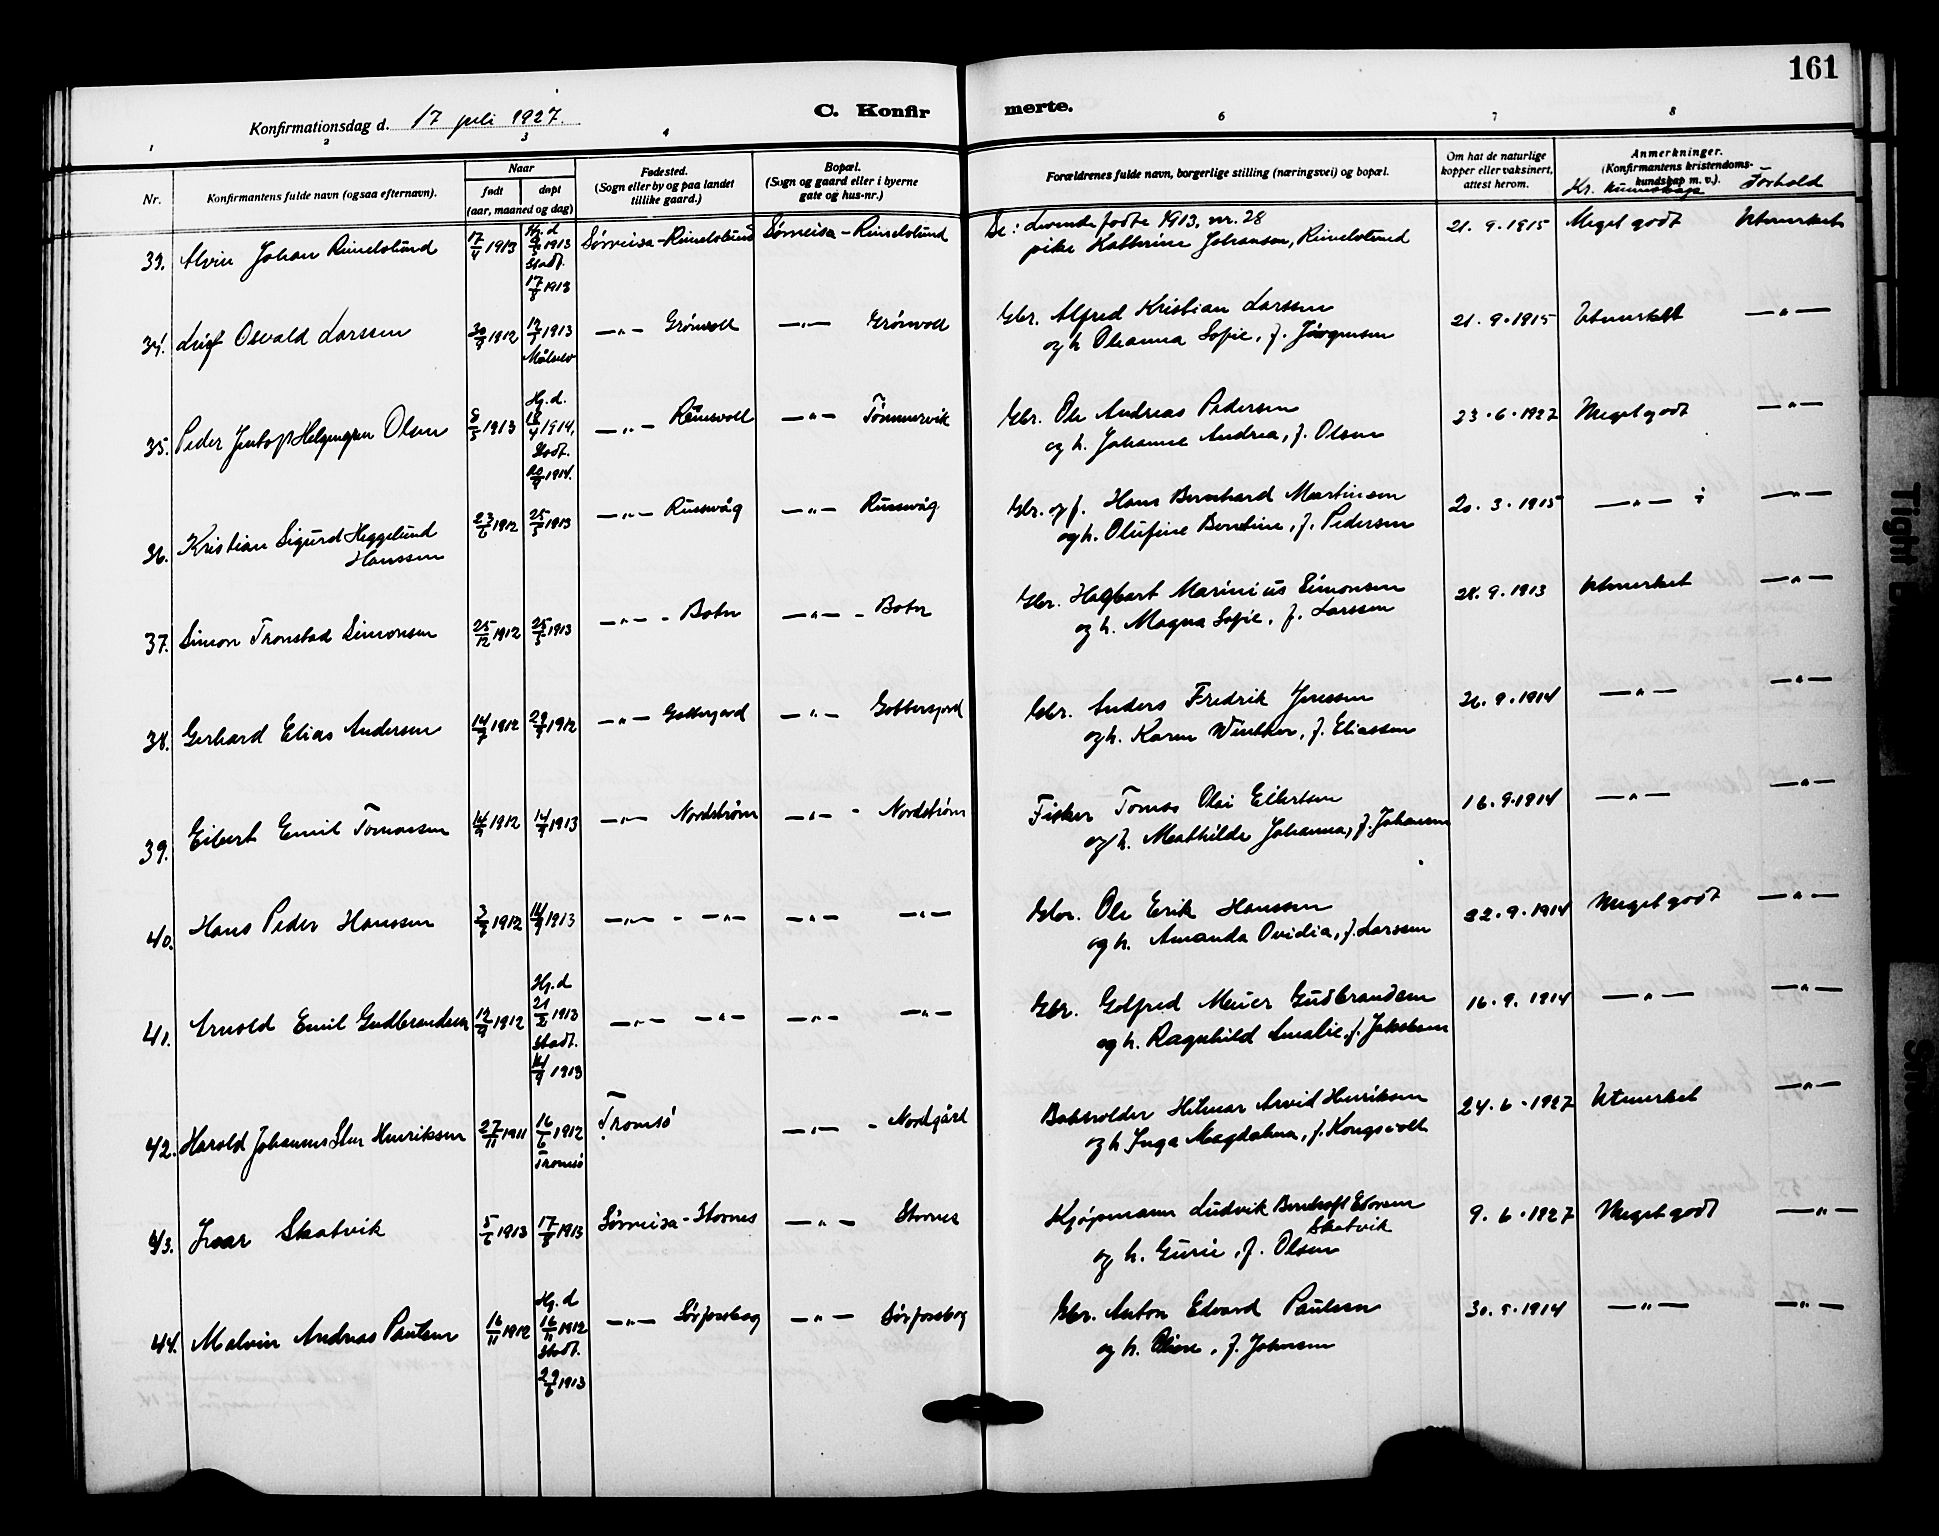 161
Konfirmationsdag d. 17 juli 1927.
C. Konfir merte.
1 2 3 4 6 7 8
Nr.
Konfirmantens fulde navn (ogsaa efternavn).
Naar
født
døpt
(aar, maaned og dag)
Fødested.
(Sogn eller by og paa landet
tillike gaard.)
Bopæl.
(Sogn og gaard eller i byerne
gate og hus-nr.)
Forældrenes fulde navn, borgerlige stilling (næringsvei) og bopæl.
Om hat de naturlige
kopper eller vaksinert,
attest herom.
Anmerkninger.
(Konfirmantens kristendoms-
kundskap m. v.).
Kr. kunnskap Forhold
33. Alvin Johan Rimelslund 17/4 1913 Hj.d. 1913 Stadf. 17/8 1913 Sørreisa - Rimelslund Sørreisa - Rimelslund
Se: Levende fødte 1913, nr. 28
pike Kathrine Johansen, Rimelslund 21.9.1915 Meget godt Utmerket
34. Osvald Larssen 30/9 1912 1913 Målselv —„— Grönvoll —„— Grönvoll
Gbr. Alfred Kristian Larssen
og h. Oleanna Sofie, f. Jörgensen 21.9.1915 Utmerket —„—
35. Peder Olsen 8/5 1913 Hj.d. 18/4 1914. Stadf. 20/9 1914. —„— Rimsvoll —„— Tømmervik
Gbr. Ole Andreas Pedersen
og h. Johanne Andrea, f. Olsen 23.6.1927 Meget godt —„—
36. Kristian Sigurd Heggelund
Hanssen 23/6 1912 25/5 1913 —„— Russevåg —„— Russevåg
Gbr. og f. Hans Bernhard Martinsen
og h. Olufine Berntine, f. Pedersen 20.3.1915 —„— —„—
37. Simon Tronstad Simonsen 25/12 1912 25/5 1913 —„— - Botn —„— - Botn
Gbr. Hagbart Marinius Simonsen
og h. Magna Sofie, f. Larssen 28.9.1913 Utmerket —„—
38. Gerhard Elias Andersen 14/7 1912 29/9 1912 —„— Gottesjord —„— Gottesjord
Gbr. Anders Fredrik Jenssen
og h. Karen Winther, f. Eliassen 26.9.1914 —„— —„—
39. Eibert Emil Tomassen 14/9 1912 14/9 1913 —„— Nordstrøm —„— - Nordstrøm
Fisker Tomas Olai Eilertsen
og h. Mathilde Johanna, f. Johansen 16.9.1914 —„— —„—
40. Hans Peder Hanssen 1912 14/9 1913 —„— - —„— —„— —„—
Gbr. Ole Erik Hanssen
og h. Amanda Ovidia, f. Larssen 22.9.1914 Meget godt —„—
41. Arnold Emil Gudbrandsen 12/9 1912 Hj.d 21/2 1913 Stadf. 14/9 1913 —„— —„— —„— —„—
Gbr. Golfred Meier Gudbrandsen
og h. Ragnhild Amalie, f. Jakobsen 16.9.1914 —„— —„—
42. Harald Johannes Henriksen 27/11 1911 16/6 1912 Tromsö Tromsö —„— - Nordgård
Båtsholder Hilmar Arvid Henriksen
og h. Inga Magdalena, f. Kongsvoll 24.6.1927 Utmerket —„—
43. Ivar Skatvik 5/6 1913 17/8 1913 Sørreisa - Stornes —„— Stornes
Kjöpmann Ludvik Berntoft
Skatvik
og h. Gurie, f. Olsen 9.6.1927 Meget godt —„—
44. Malvin Andreas Paulsen 16/11 1912 Hj.d 16/11 1912 Stadf. 29/6 1913 —„— Sørforsbog —„— Sørforsbog
Gbr. Anton Edvard Paulsen
og h. Oline, f. Johansen 30.5.1914 —„— —„—